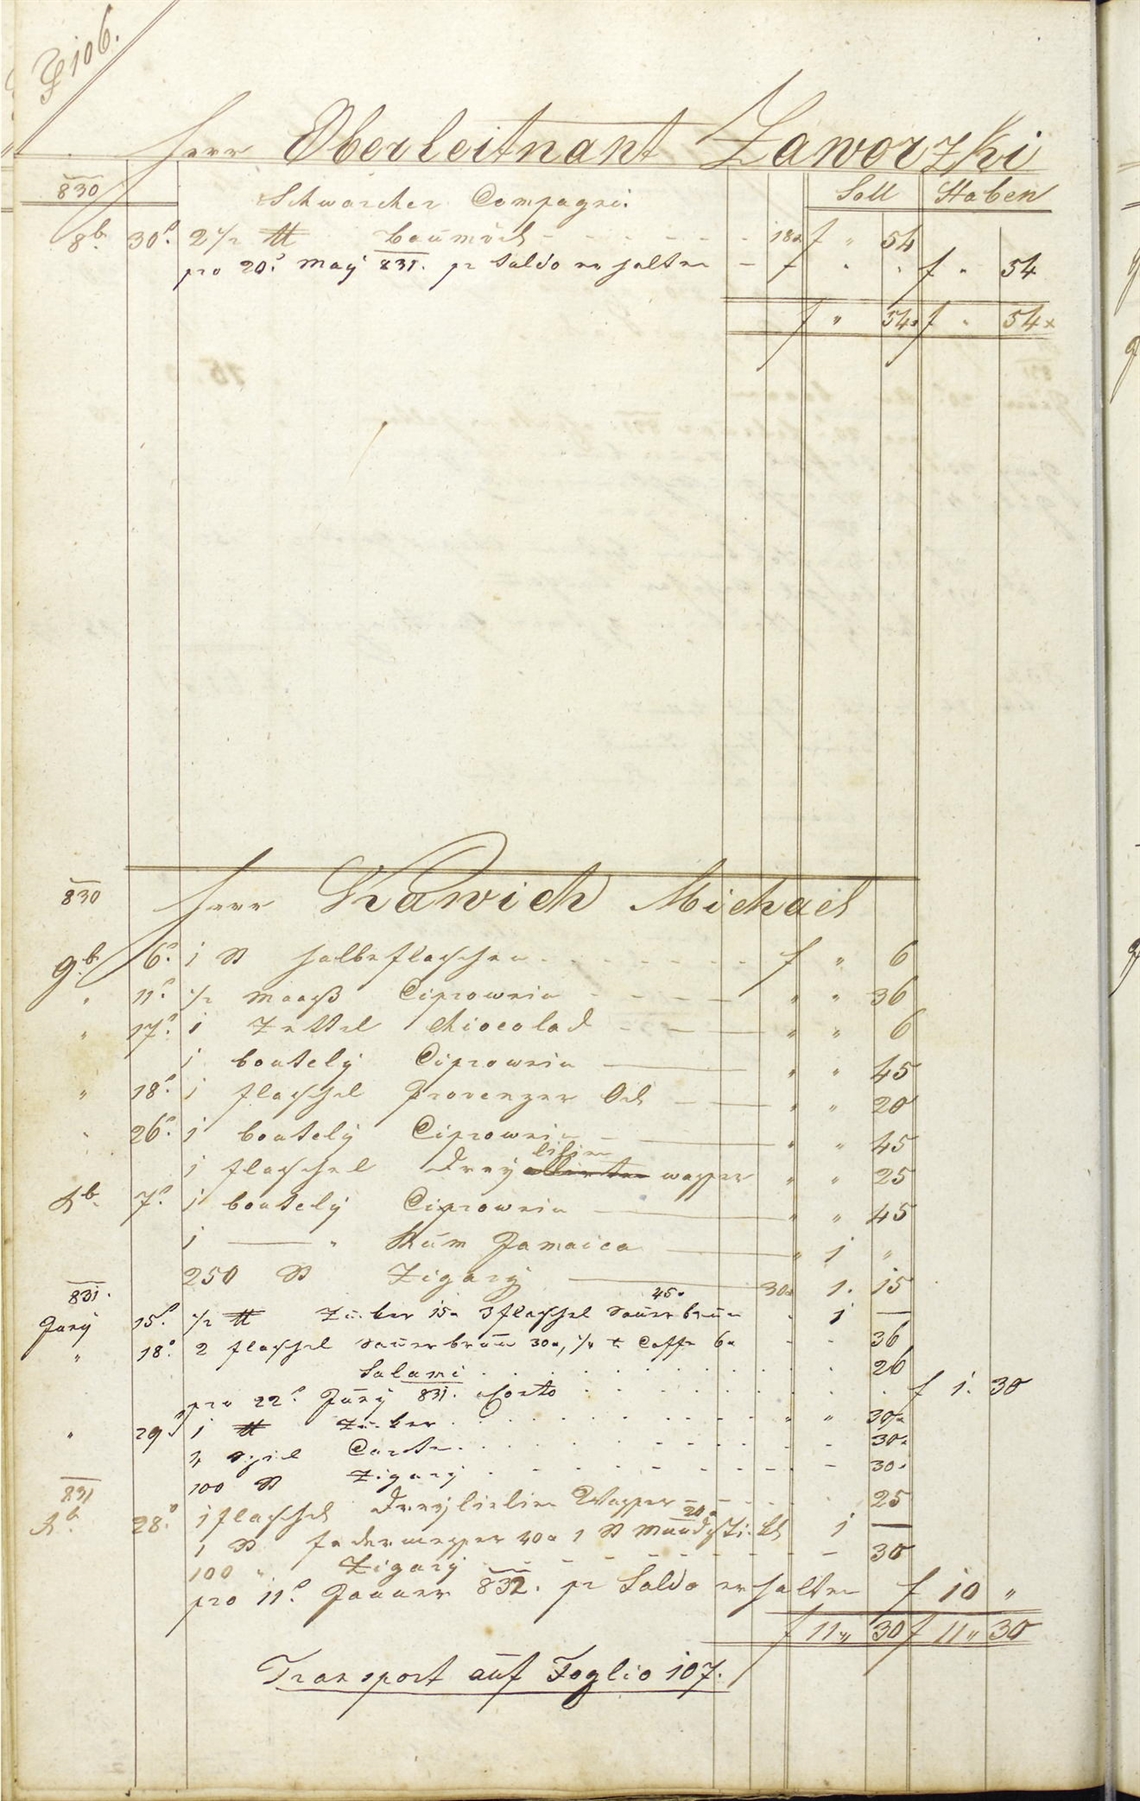 106.
Herr Oberleitnant Zaworzki
830 Schwarcher Compagni. Soll Haben
8b. 30. 2 1/2 ℔ baumöhl - - - - - 18x f " 54
pro 20. May 831. pr Saldo erhalten - - " " f " 54
f " 54x f " 54x
830 Herr Kawich Michael
9b. 6. 1 St halbe flaschen - - - - - f " 6
" 11. 1/2 Maaß Ciprowein - - - - " " 36
" 17. 1 Zettel Chiocolad - - - " " 6
1 boutely Ciprowein " " 45
" 18. 1 flaschel Provenzer Oel " " 20
" 26. 1 boutely Ciprowein " " 45
1 flaschel Drey lilien wasser " " 25
Xb. 7. 1 boutely Ciprowein " " 45
1 — " Rum Jamaica " 1 "
250 St Zigary 30x 1. 15
831.
Juny 15. 1/2 ℔ Zuker 15x 3 flaschel Sauerbrun 45x " 1 —
" 18. 2 flaschel Sauerbrun 30x, 1/4 ℔ Caffe 6x - - 36
Salami . . . . . 26
pro 22. Juny 831. Conto . . . . . f 1. 30
" 29. 1 ℔ Zuker . . . . . " " 30x
spiel Carten . . . . . - 30x
100 St Zigary . . . . . - 30x
831
Xb. 28. 1 flaschel Dreylielien Wasser - - - 25
1 St federmesser 40x 1 St Mundstückl 20x 1 —
100 " Zigary - - - - - 30
pro 11. Januer 832. pr Saldo erhalten f 10 "
f 11 " 30 f 11 " 30
Transport auf Foglio 107.